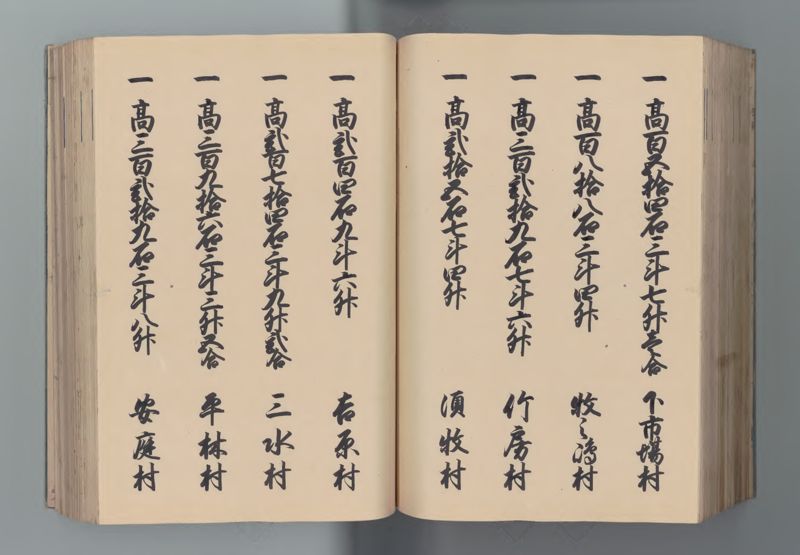 一 高百五拾四石三斗七升壱合 下市場村
一 高百八拾八石三斗四升 牧之嶋村
一 高三百弐拾九石七斗六升 竹房村
一 高弐拾五石七斗四升 須牧村
一 高弐百四石九斗六升 吉原村
一 高弐百七拾四石三斗九升弐合 三水村
一 高三百九拾六石三斗三升五合 平林村
一 高三百弐拾九石三斗八升 安庭村